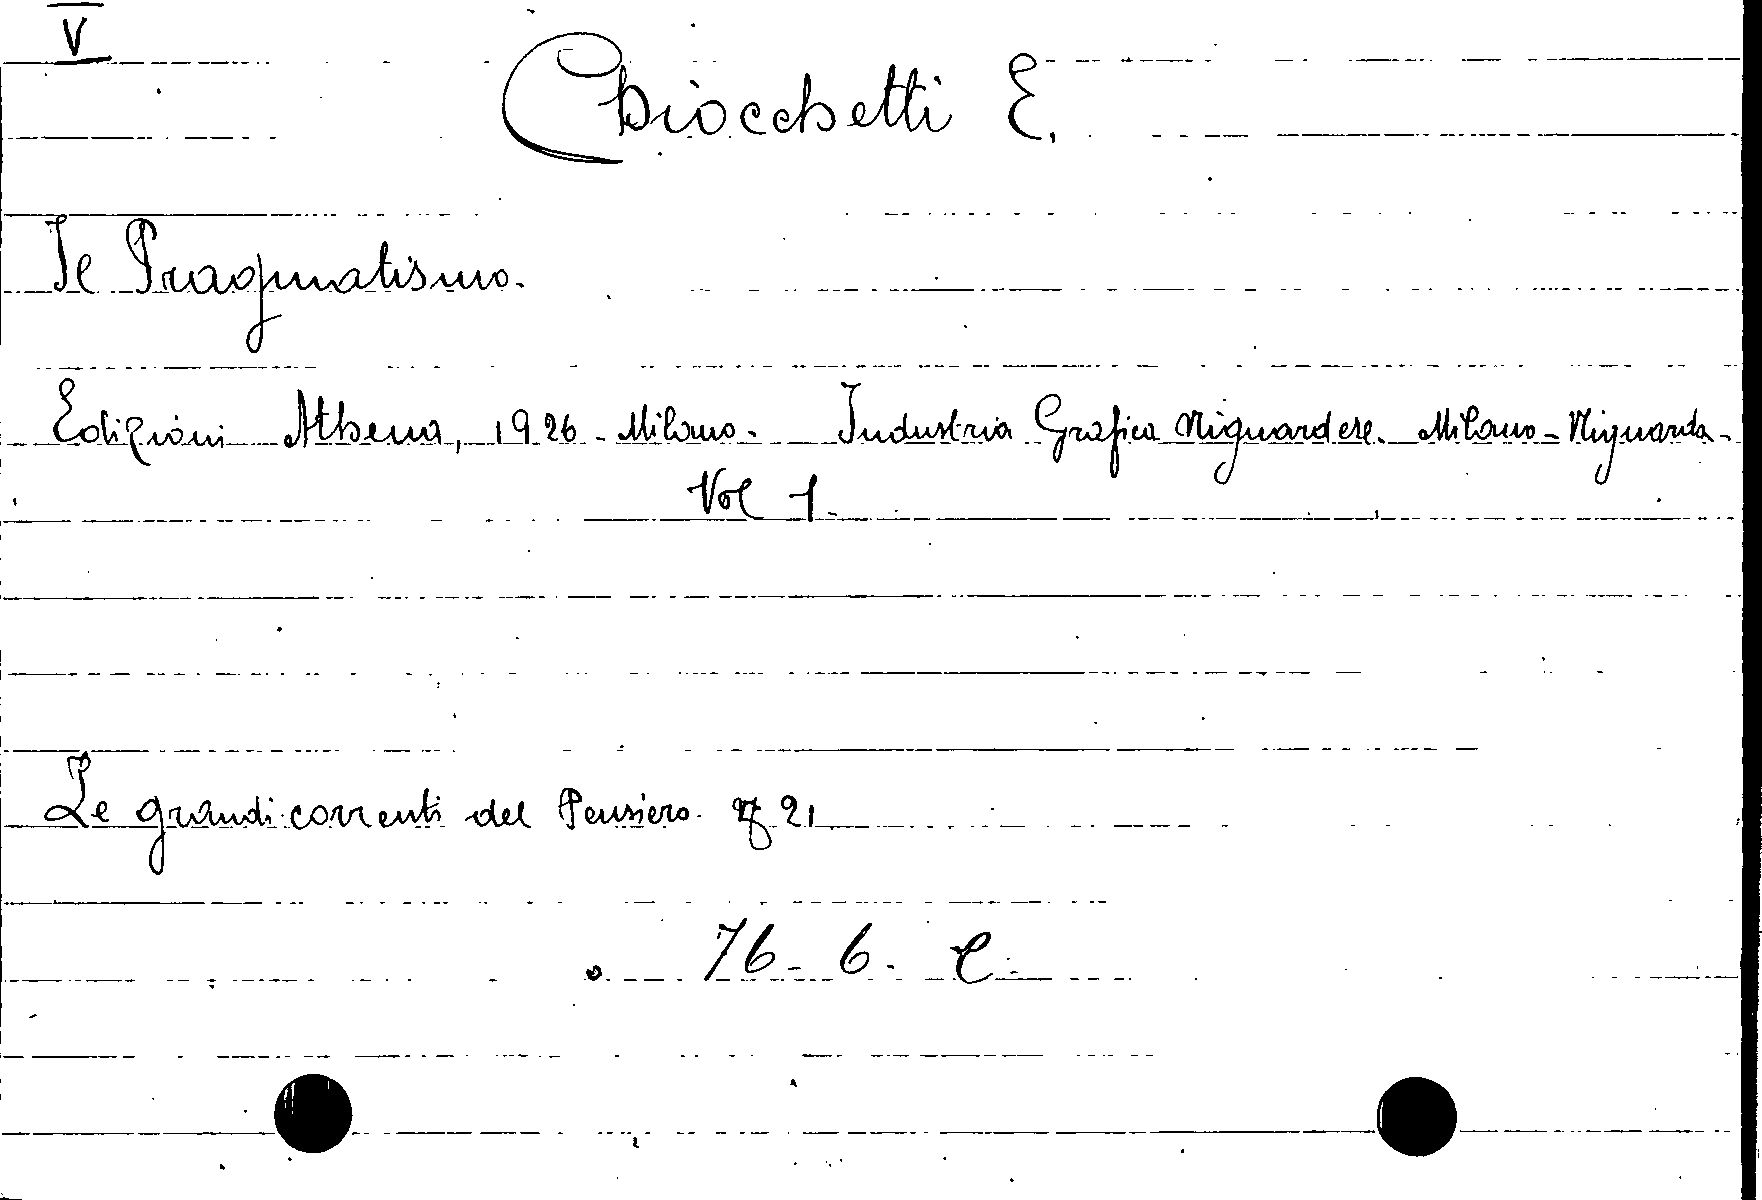 V
Chiocchetti E.
Il Pragmatismo.
Edizioni Athena, 1926 - Milano. Industria Grafica Niguardese. Milano - Niguarda -
Vol 1.
Le grandi correnti del Pensiero. 21
76 - 6. C.